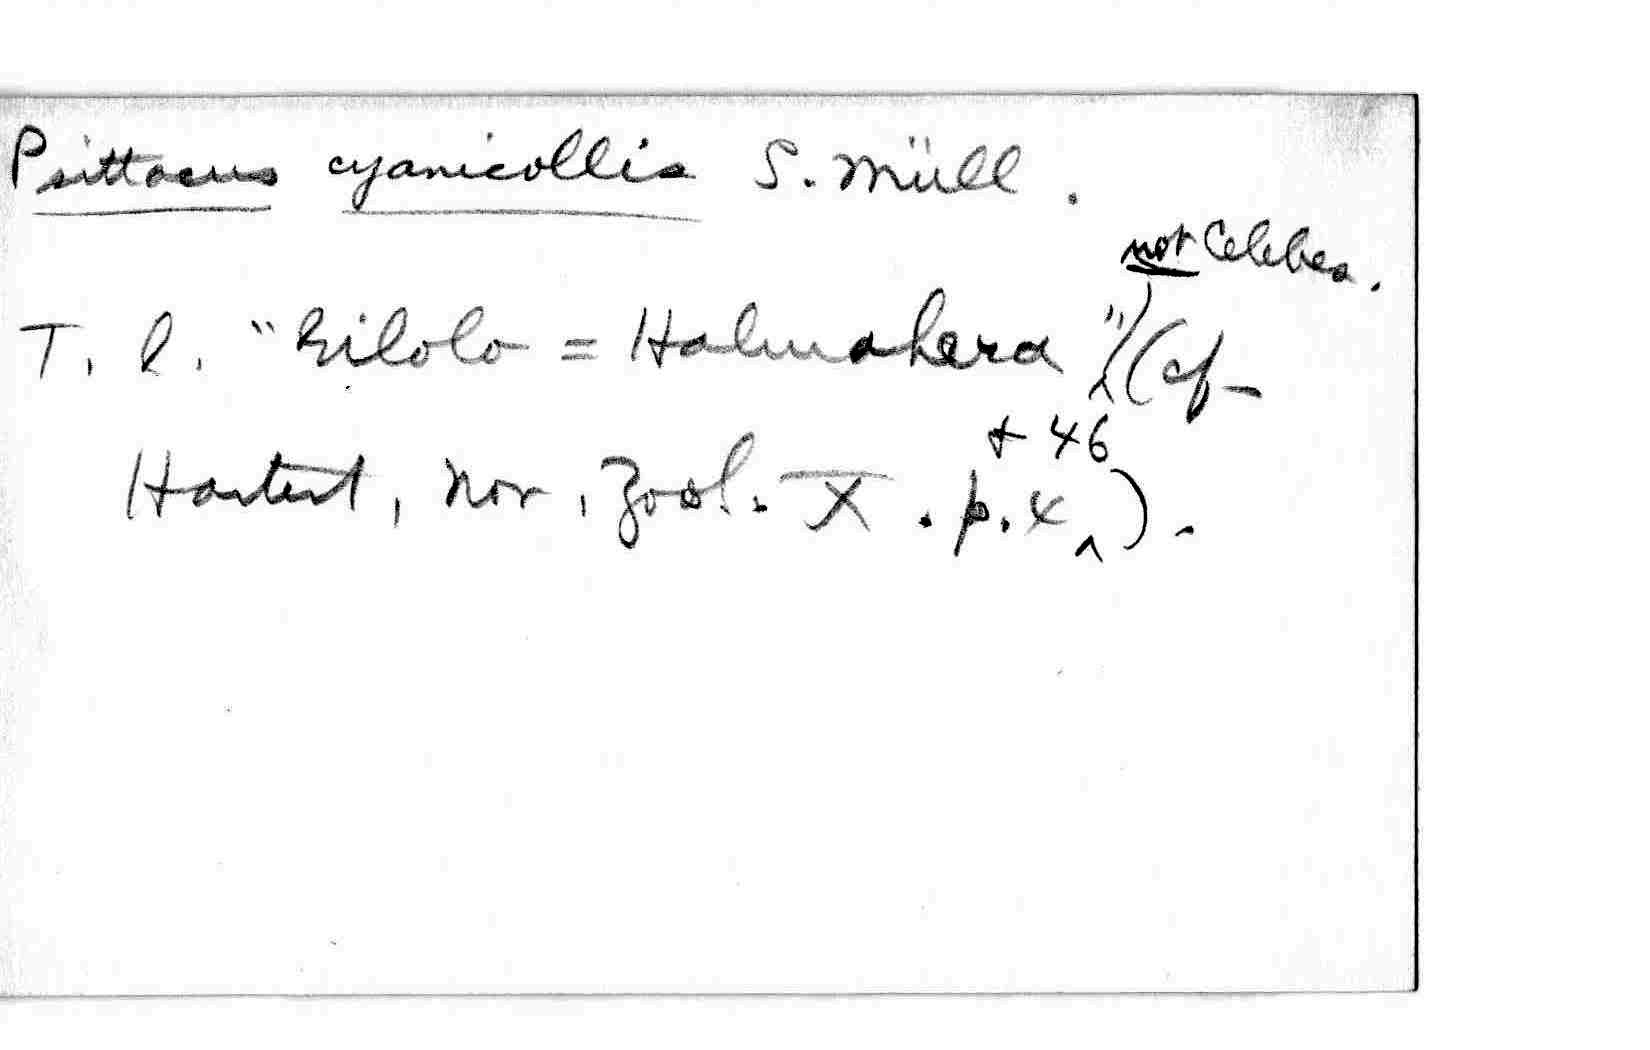 Psittacus cyanicollis S. Müll.
not Celebes.
T. l. "Gilolo = Halmahera" (cf-
+ 46
Hartert, Nov. Zool. X. p. x).